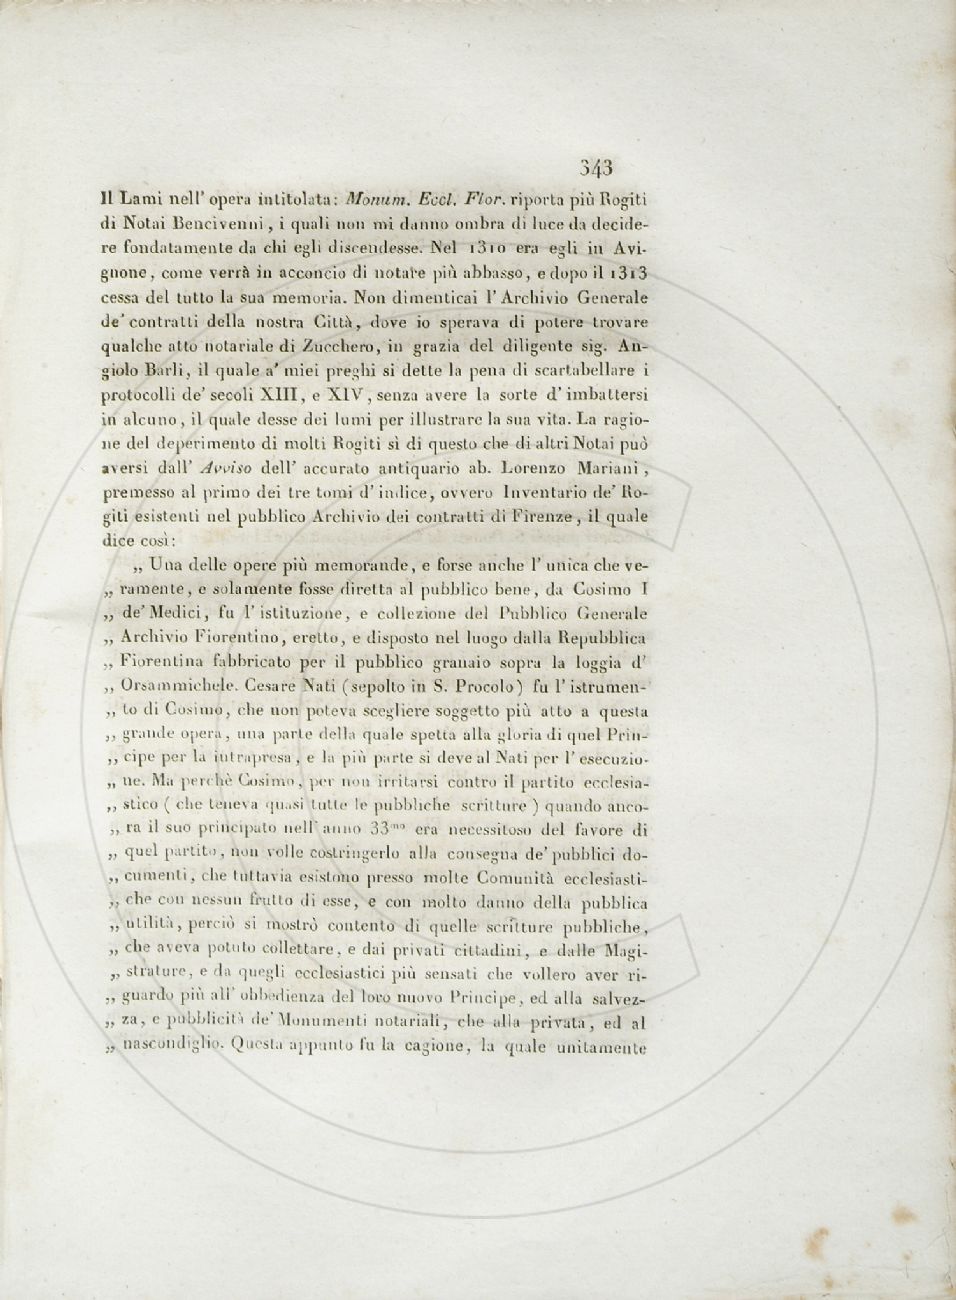 343
Il Lami nell' opera intitolata: Monum. Eccl. Flor. riporta più Rogiti
di Notai Bencivenni, i quali non mi danno ombra di luce da decide-
re fondatamente da chi egli discendesse. Nel 1310 era egli in Avi-
gnone, come verrà in acconcio di notare più abbasso, e dopo il 1313
cessa del tutto la sua memoria. Non dimenticai l' Archivio Generale
de' contratti della nostra Città, dove io sperava di potere trovare
qualche atto notariale di Zucchero, in grazia del diligente sig. An-
giolo Barli, il quale a' miei preghi si dette la pena di scartabellare i
protocolli de' secoli XIII, e XIV, senza avere la sorte d' imbattersi
in alcuno, il quale desse dei lumi per illustrare la sua vita. La ragio-
ne del deperimento di molti Rogiti sì di questo che di altri Notai può
aversi dall' Avviso dell' accurato antiquario ab. Lorenzo Mariani,
premesso al primo dei tre tomi d' indice, ovvero Inventario de' Ro-
giti esistenti nel pubblico Archivio dei contratti di Firenze, il quale
dice così:
„ Una delle opere più memorande, e forse anche l' unica che ve-
„ ramente, e solamente fosse diretta al pubblico bene, da Cosimo I
„ de' Medici, fu l' istituzione, e collezione del Pubblico Generale
„ Archivio Fiorentino, eretto, e disposto nel luogo dalla Repubblica
„ Fiorentina fabbricato per il pubblico granaio sopra la loggia d'
„ Orsammichele. Cesare Nati (sepolto in S. Procolo) fu l' istrumen-
„ to di Cosimo, che non poteva scegliere soggetto più atto a questa
„ grande opera, una parte della quale spetta alla gloria di quel Prin-
„ cipe per la intrapresa, e la più parte si deve al Nati per l' esecuzio-
„ ne. Ma perchè Cosimo, per non irritarsi contro il partito ecclesia-
„ stico ( che teneva quasi tutte le pubbliche scritture ) quando anco-
„ ra il suo principato nell' anno 33mo era necessitoso del favore di
„ quel partito, non volle costringerlo alla consegna de' pubblici do-
„ cumenti, che tuttavia esistono presso molte Comunità ecclesiasti-
„ che con nessun frutto di esse, e con molto danno della pubblica
„ utilità, perciò si mostrò contento di quelle scritture pubbliche,
„ che aveva potuto collettare, e dai privati cittadini, e dalle Magi-
„ strature, e da quegli ecclesiastici più sensati che vollero aver ri-
„ guardo più all' obbedienza del loro nuovo Principe, ed alla salvez-
„ za, e pubblicità de' Monumenti notariali, che alla privata, ed al
„ nascondiglio. Questa appunto fu la cagione, la quale unitamente